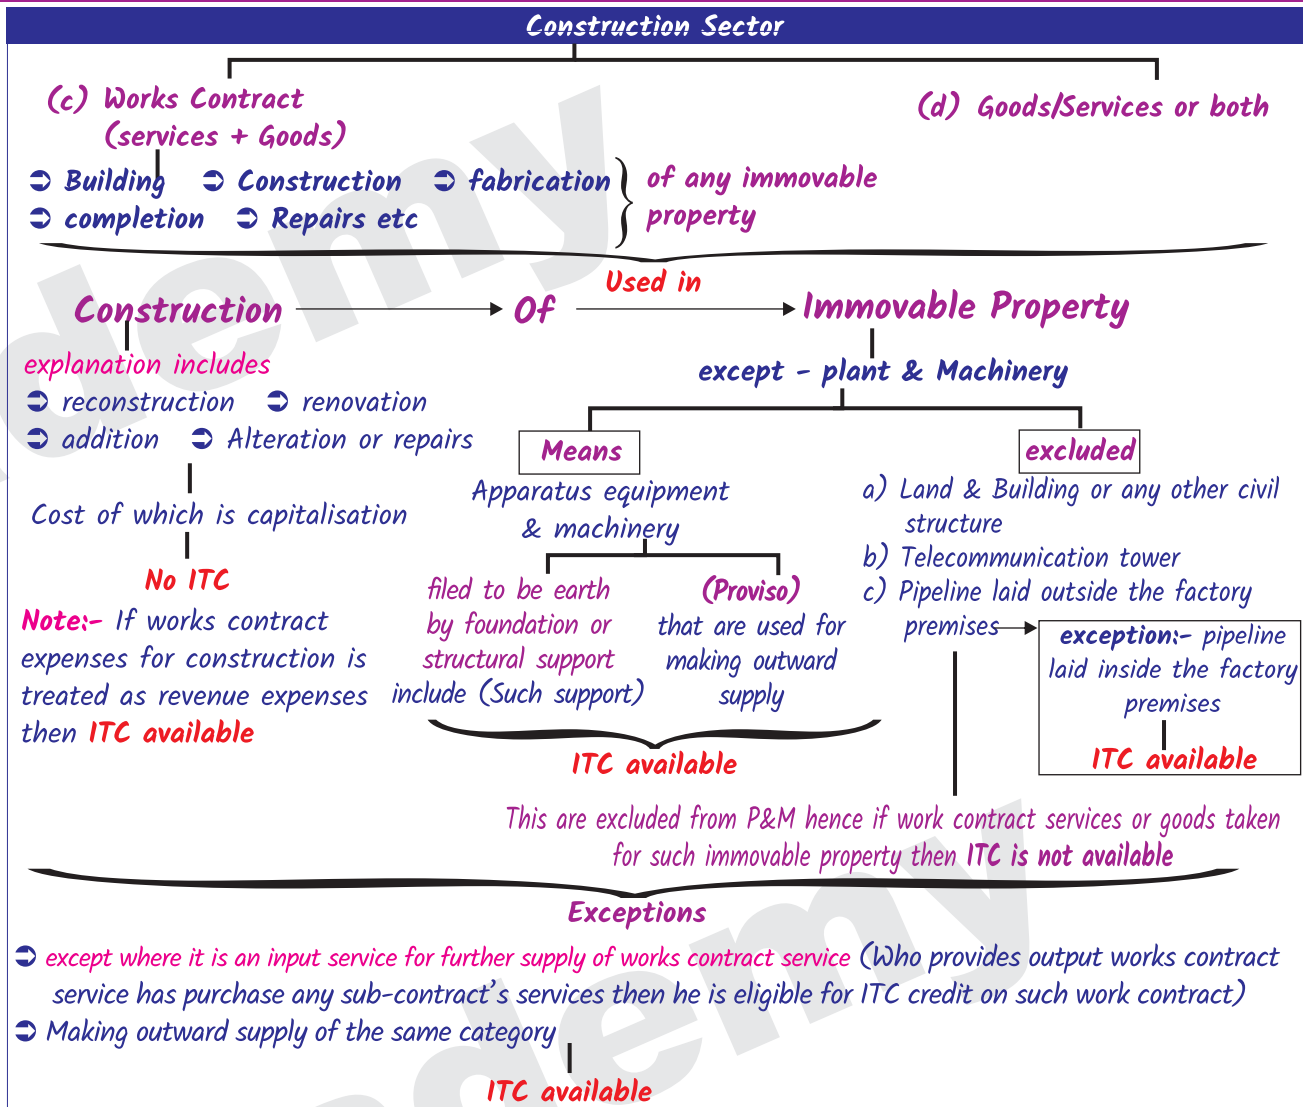 Construction Sector
(c) Works Contract
(services + Goods)
(d) Goods/Services or both
➲ Building ➲ Construction ➲ fabrication
➲ completion ➲ Repairs etc
of any immovable
property
Used in
Construction Of Immovable Property
explanation includes
➲ reconstruction ➲ renovation
➲ addition ➲ Alteration or repairs
Cost of which is capitalisation
No ITC
Note:- If works contract
expenses for construction is
treated as revenue expenses
then ITC available
except - plant & Machinery
Means
Apparatus equipment
& machinery
filed to be earth
by foundation or
structural support
include (Such support)
(Proviso)
that are used for
making outward
supply
ITC available
excluded
a) Land & Building or any other civil
structure
b) Telecommunication tower
c) Pipeline laid outside the factory
premises
exception:- pipeline
laid inside the factory
premises
ITC available
This are excluded from P&M hence if work contract services or goods taken
for such immovable property then ITC is not available
Exceptions
➲ except where it is an input service for further supply of works contract service (Who provides output works contract
service has purchase any sub-contract's services then he is eligible for ITC credit on such work contract)
➲ Making outward supply of the same category
ITC available
ademy
ademy